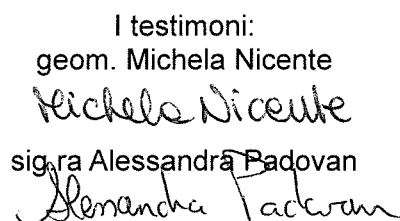 I testimoni:
geom. Michela Nicente
Michela Nicente
sig.ra Alessandra Padovan
Alessandra Padovan